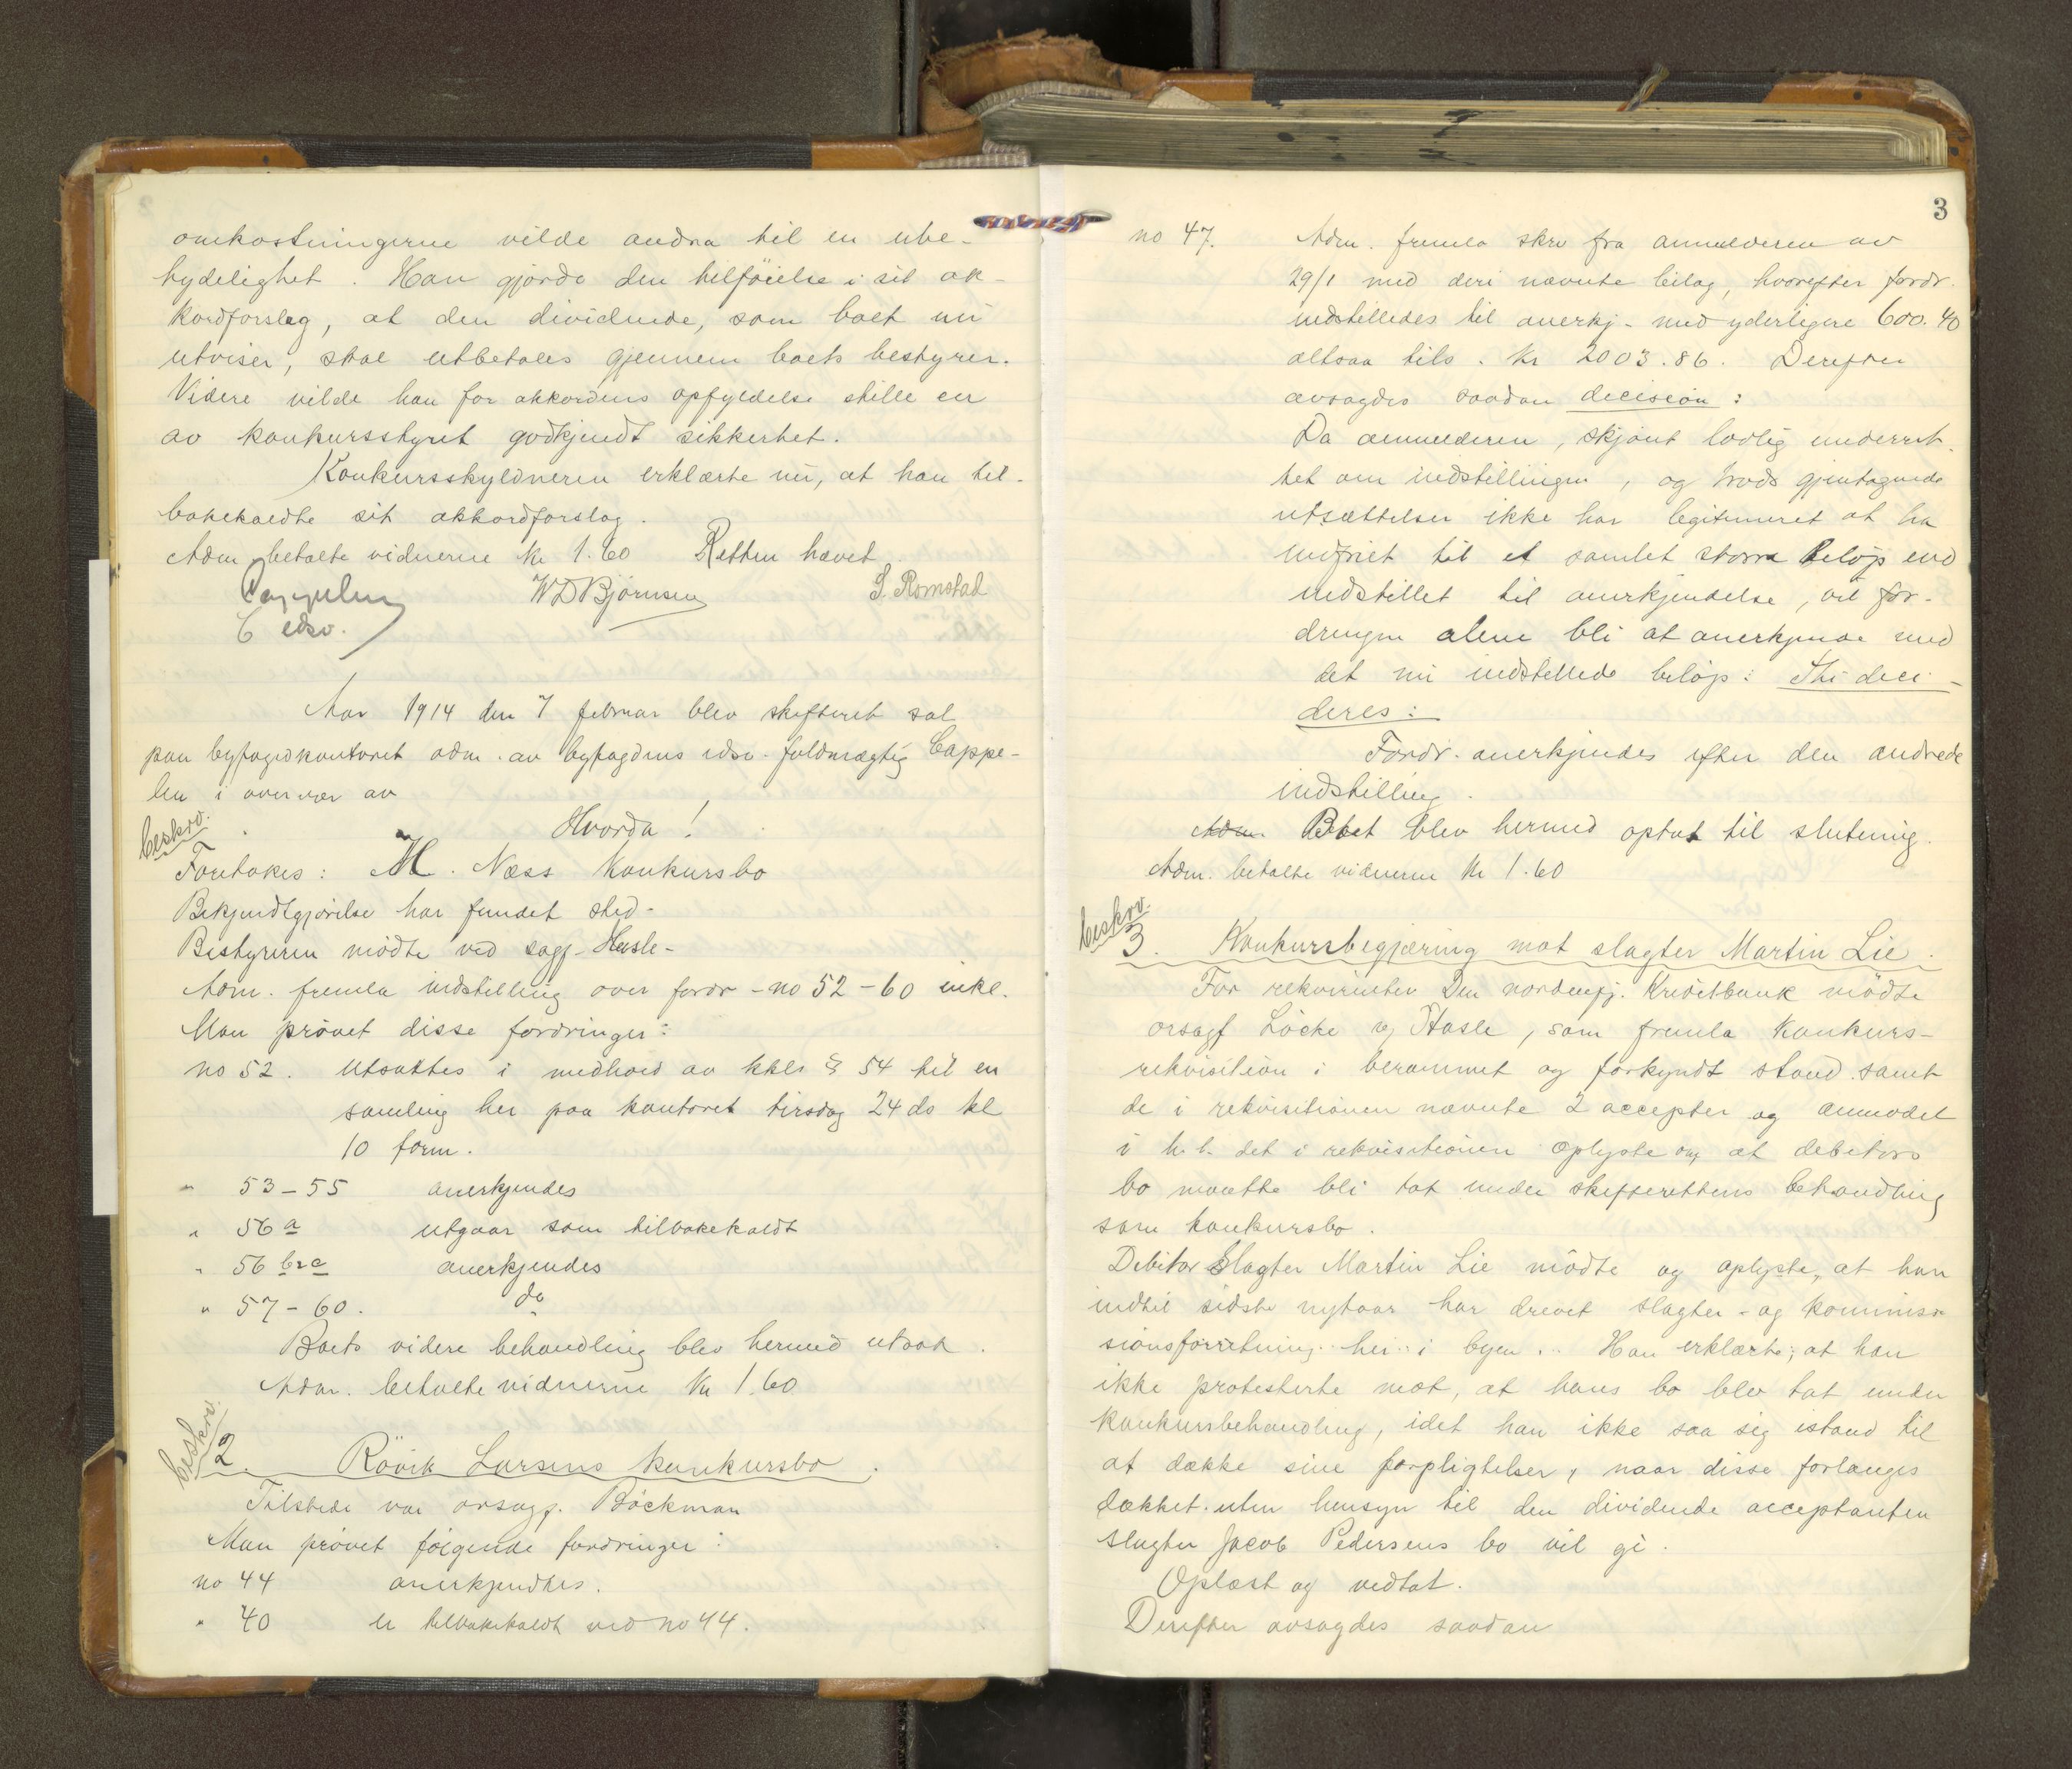 omkostningerne vilde andra til en ube-
tydelighet. Han gjorde den tilföielse i sit ak-
kordforslag, at den dividende, som boet nu
utviser, skal utbetales gjennem boets bestyrer.
Videre vilde han for akkordens opfyldelse stille en
av konkursstyret godkjendt sikkerhet.
Konkursskyldneren erklærte nu, at han til-
bakekaldte sit akkordforslag.
Adm. betalte vidnerne kr 1.60 Retten hævet
Cappelen W D Bjørnsen S. Romstad
edsv.
Aar 1914 den 7 februar blev skifteret sat
paa byfogedkontoret adm. av byfogdens edsv. fuldmægtig Cappe-
len i overvær av
beskrv.
Hvorda!
Foretokes: M. Næss Konkursbo
Bekjendtgjörelse har fundet sted-
Bestyreren mödte ved sagf. Hasle-
Adm. fremla indstilling over fordr - no 52 - 60 inkl.
Man prövet disse fordringer:
no 52. Utsattes i medhold av kkls § 54 til en
samling her paa kontoret tirsdag 24 ds kl
10 form.
" 53 - 55 anerkjendes
" 56 a utgaar som tilbakekaldt
" 56 b & c anerkjendes
" 57 - 60. do
Boets videre behandling blev hermed utsat.
Adm. betalte vidnerne Kr 1.60
beskrv.
2. Rövik Larsens konkursbo.
Tilstede var orsagf. Böckman
Man prövet fölgende fordringer:
no 44 anerkjendtes.
" 40 er tilbakekaldt ved no 44.
3
no 47. Adm. fremla skrv fra anmelderen av
29/1 med deri nævnte bilag, hvorefter fordr.
indstilledes til anerkj. med yderligere 600.40
altsaa tils. kr 2003.86. Derefter
avsagdes saadan decision:
Da anmelderen, skjönt lovlig underret-
tet om indstillingen, og trods gjentagende
utsættelser ikke har legitimeret at ha
indfriet til et samlet större belöp end
indstillet til anerkjendelse, vil for-
dringen alene bli at anerkjende med
det nu indstillede belöp: Thi deci-
deres:
Fordr. anerkjendes efter den andrede
indstilling.
Adm. Boet blev hermed optat til slutning.
Adm. betalte vidnerne Kr 1.60
beskrv.
3. Konkursbegjæring mot slagter Martin Lie.
For rekvirenten Den nordenfj. Kreditbank mödte
orsagf Löcke v/ Hasle, som fremla konkurs-
rekvisition i berammet og forkyndt stand samt
de i rekvisitionen nævnte 2 accepter og anmodet
i h. t. det i rekvisitionen oplyste om at debitors
bo maatte bli tat under skifterettens behandling
som konkursbo.
Debitor Slagter Martin Lie mödte og oplyste, at han
indtil sidste nytaar har drevet slagter- og kommis-
sionsforretning her i byen. Han erklærte, at han
ikke protesterte mot, at hans bo blev tat under
konkursbehandling, idet han ikke saa sig istand til
at dække sine forpligtelser, naar disse forlanges
dækket uten hensyn til den dividende acceptanten
slagter Jacob Pedersens bo vil gi.
Oplæst og vedtat.
Derefter avsagdes saadan